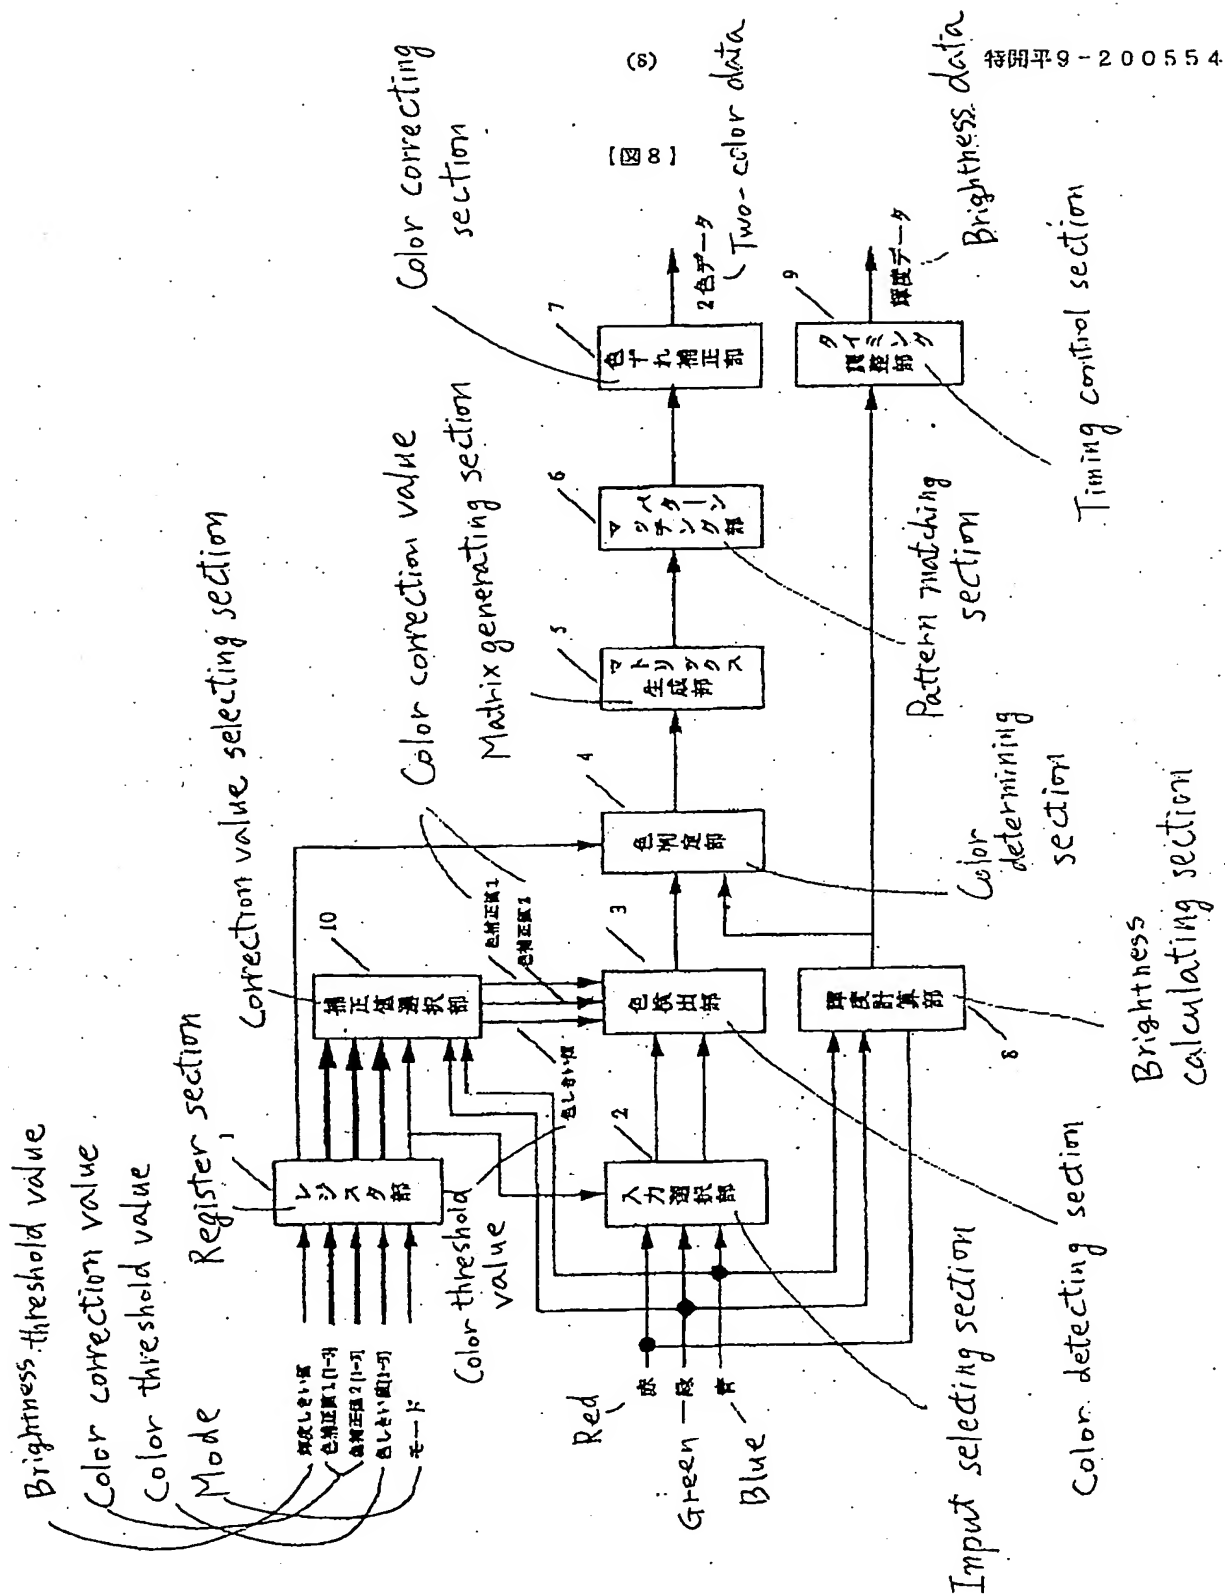 (8)
特開平9-200554
【図8】
Brightness threshold value
Color correction value
Color threshold value
Mode
輝度しきい値
色補正値1(1-3)
色補正値2(1-3)
色しきい値(1-3)
モード
Register section
1
レジスタ部
Correction value selecting section
10
補正値選択部
Color correction value
色補正値1
色補正値2
色しきい値
Color threshold
value
Red
赤
Green
緑
Blue
青
2
入力選択部
Input selecting section
3
色検出部
Color detecting section
4
色判定部
Color
determining
section
5
マトリックス
生成部
Matrix generating section
6
パターン
マッチング部
Pattern matching
section
7
色ずれ補正部
Color correcting
section
2色データ
Two-color data
8
輝度計算部
Brightness
calculating section
9
タイミング
調整部
Timing control section
輝度データ
Brightness data